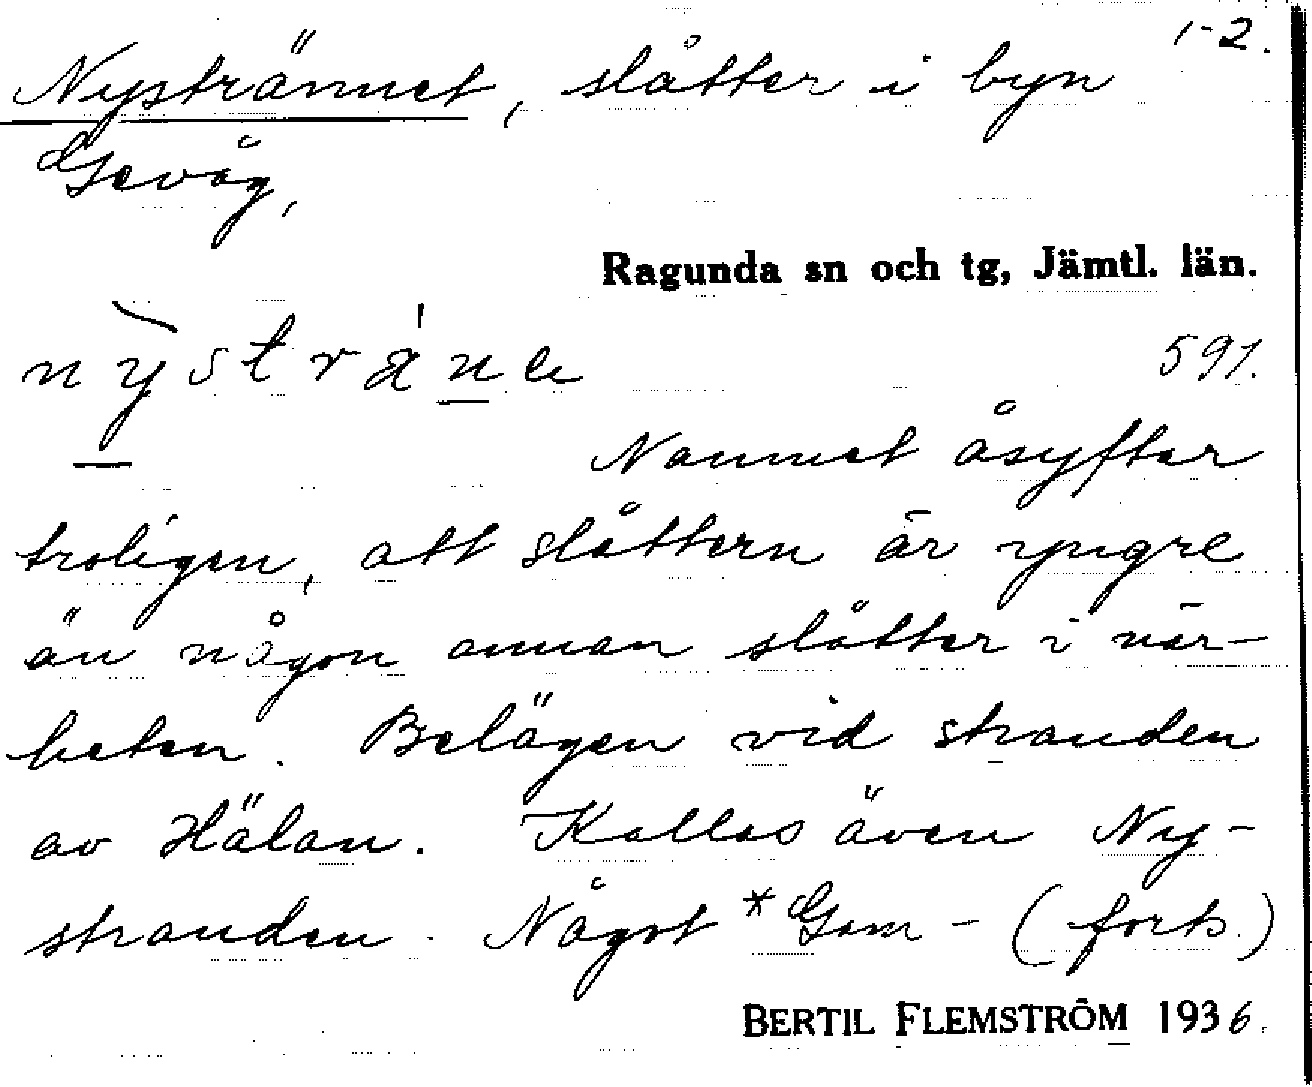 1-2.
Nystrännet, slåtter i byn
Gevåg,
Ragunda sn och tg, Jämtl. län.
591.
Namnet åsyftar
troligen, att slåttern är yngre
än någon annan slåtter i när-
heten. Belägen vid stranden
av Hälan. Kallas även Ny-
stranden. Något *Gam- (forts.)
BERTIL FLEMSTRÖM 1936.